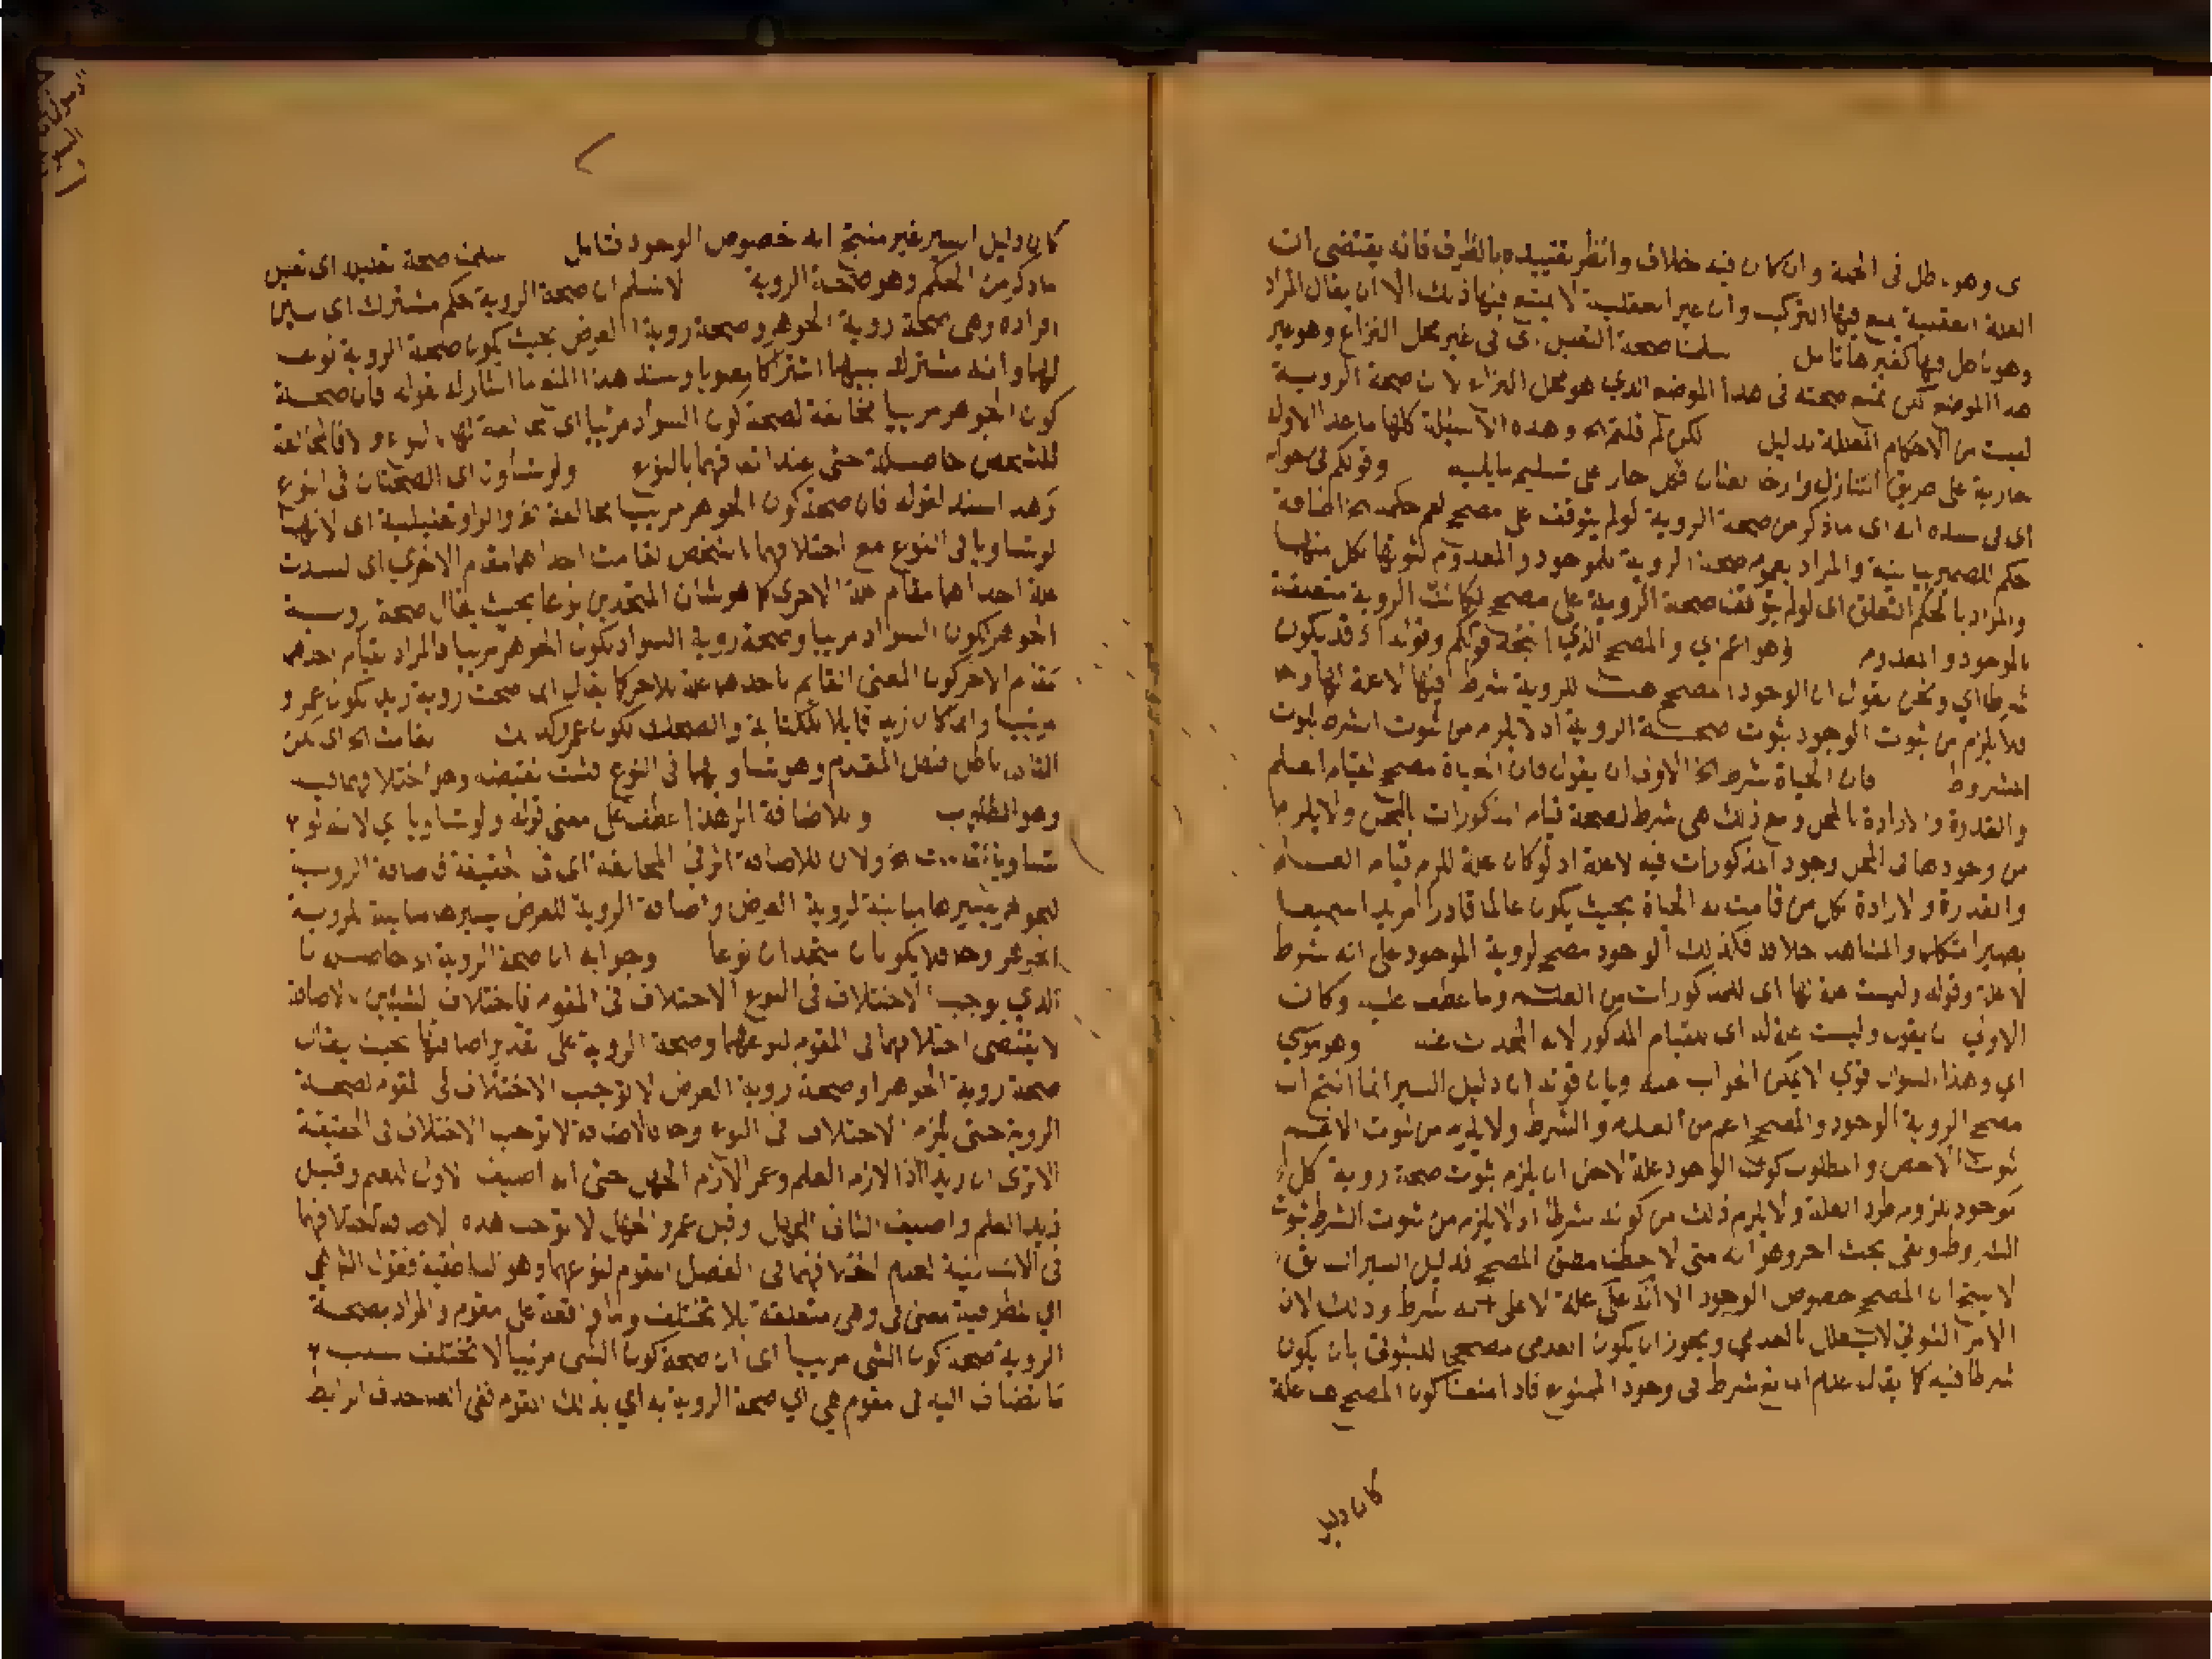 ى وهو باطل فى الجملة وان كان فيه خلاف وانظر تقييده بالظرف فانه يقتضى ان
العلة العقلية يمتنع فيها التركيب وان غير العقلية لا يمتنع فيها ذلك الا ان يقال المراد
وهو باطل فيها كغيرها تأمل سلمنا صحة التعليل اى فى غير محل النزاع وهو غير
هذا الموضع لكن نمنع صحته فى هذا الموضع الذي هو محل النزاع لان صحة الروية
ليست من الاحكام المعللة بدليل لكن لم قلتم الخ وهذه الاسئلة كلها ما عدا الاول
جارية على طريق التنازل وارخا العنان فكل جار على تسليم ما يليه وقولكم فى جوابه
اى فى سنده انه اى ما ذكر من صحة الروية لو لم يتوقف على مصحح لعم حكمه الخ اضافة
حكم للضمير بيانية والمراد بعموم صحة الروية للموجود والمعدوم ثبوتها لكل منهما
والمراد بالحكم التعلق اى لو لم يتوقف صحة الروية على مصحح لكانت الروية متعلقة
بالموجود والمعدوم وهو اعم اي والمصحح الذي انتجه قولكم وقوله اذ قد يكون
شرطا اي ونحن نقول ان الوجود المصحح هنا للروية شرط فيها لا علة لها وح
فلا يلزم من ثبوت الوجود ثبوت صحة الروية اذ لا يلزم من ثبوت الشرط ثبوت
المشروط فان الحياة شرط الخ الاولى ان يقول فان الحياة مصحح لقيام العلم
والقدرة والارادة بالمحل ومع ذلك هى شرط لصحة قيام المذكورات بالمحل ولا يلزم
من وجودها فى المحل وجود المذكورات فيه لا علة اذ لو كان علة للزم قيام العلم
والقدرة والارادة بكل من قامت به الحياة بحيث يكون عالما قادرا مريدا سميعا
بصيرا متكلما والمشاهد خلافه فكذلك الوجود مصحح لروية الموجود على انه شرط
لا علة وقوله وليست علة لها اى للمذكورات من العلم وما عطف عليه وكان
الاولى ان يقول وليست علة له اى للقيام المذكور لانه المحدث عنه وهو قوي
اي وهذا السوال قوي لا يمكن الجواب عنه وبيان قوته ان دليل السبر انما انتج ان
مصحح الروية الوجود والمصحح اعم من العلة والشرط ولا يلزم من ثبوت الاعم
ثبوت الاخص والمطلوب كون الوجود علة لاجل ان يلزم ثبوت صحة روية كل
موجود للزوم طرد العلة ولا يلزم ذلك من كونه شرطا اذ لا يلزم من ثبوت الشرط ثبوت
المشروط وبقى بحث اخر وهو انه متى لاحظنا مطلق المصحح فدليل السبر
لا ينتج ان المصحح خصوص الوجود الا انه على علة لا على انه شرط وذلك لان
الامر الثبوتي لا يعلل بالعدمي ويجوز ان يكون العدمى مصحح للثبوتى بان يكون
شرطا فيه كما يقال عدم المانع شرط فى وجود الممنوع فاذا منعنا كون المصحح هنا علة
كان دليل
كان دليل السبر غير منتج انه خصوص الوجود فتامل سلمنا صحة تعليل اى تعليل
ما ذكر من الحكم وهو صحة الروية لا نسلم ان صحة الروية حكم مشترك اى بين
افراده وهى صحة روية الجوهر وصحة روية العرض بحيث يكون صحة الروية نوعا
لهما وانه مشترك بينهما اشتراكا معنويا وسند هذا المنع ما اشار له بقوله فان صحة
كون الجوهر مرييا مخالفة لصحة كون السواد مرئيا اى مخالفة لها بالنوع والا فالمخالفة
بالشخص حاصلة حتى عند اتفاقهما بالنوع ولو تساوت اى الصحتان فى النوع
وهذا سند لقوله فان صحة كون الجوهر مرييا مخالفة الخ والواو تعليلية اى لانهما
لو تساويا فى النوع مع اختلافهما بالشخص لقامت احداهما مقام الاخرى اى لسدت
علة احداهما مقام علة الاخرى كما هو شان المتحدين نوعا بحيث يقال صحة روية
الجوهر لكون السواد مرييا وصحة روية السواد لكون الجوهر مرييا فالمراد بقيام احدهما
مقام الاخر كون المعنى القائم باحدهما علة للاخر كما يقال اى صحت روية زيد لكون عمرو
مرييا وان كان زيد قابلا للكتابة والضحك لكون عمرو كذلك لقامت الخ اى لكن
التالى باطل فبطل المقدم وهو تساويهما فى النوع فثبت نقيضه وهو اختلافهما به
وهو المطلوب وللاضافة اثر هذا عطف على معنى قوله ولو تساويا اي لانه لو
تساويا لقامت الخ ولان للاضافة اثر فى المخالفة اى فى الحقيقة فاضافة الروية
للجوهر يصيرها مباينة لروية العرض واضافة الروية للعرض يصيرها مباينة لروية
الجوهر وح فلا يكونان متحدان نوعا وجوابه ان صحة الروية الخ حاصله ان
الذي يوجب الاختلاف فى النوع الاختلاف فى المقوم فاختلاف الشيئين بالاضافة
لا يقتضى اختلافهما فى المقوم لنوعهما وصحة الروية على تقدير اضافتها بحيث يقال
صحة روية الجوهر او صحة روية العرض لا توجب الاختلاف فى المقوم لصحة
الروية حتى يلزم الاختلاف فى النوع وح فالاضافة لا توجب الاختلاف فى الحقيقة
الا ترى ان زيدا اذا لازم العلم وعمر الازم الجهل حتى انه اضيف الاول للعلم وقيل
زيد العلم واضيف الثانى للجهل وقيل عمرو الجهل لا توجب هذه الاضافة اختلافهما
فى الانسانية لعدم اختلافهما فى الفصل المقوم لنوعهما وهو الناطقية فقوله التى هي
الروية صحة كون الشى مرييا اى ان صحة كون الشى مرئيا لا تختلف بسبب
ما تضاف اليه فى مقوم هي اي صحة الروية به اي بذلك المقوم ففى العبارة حذف الرابط